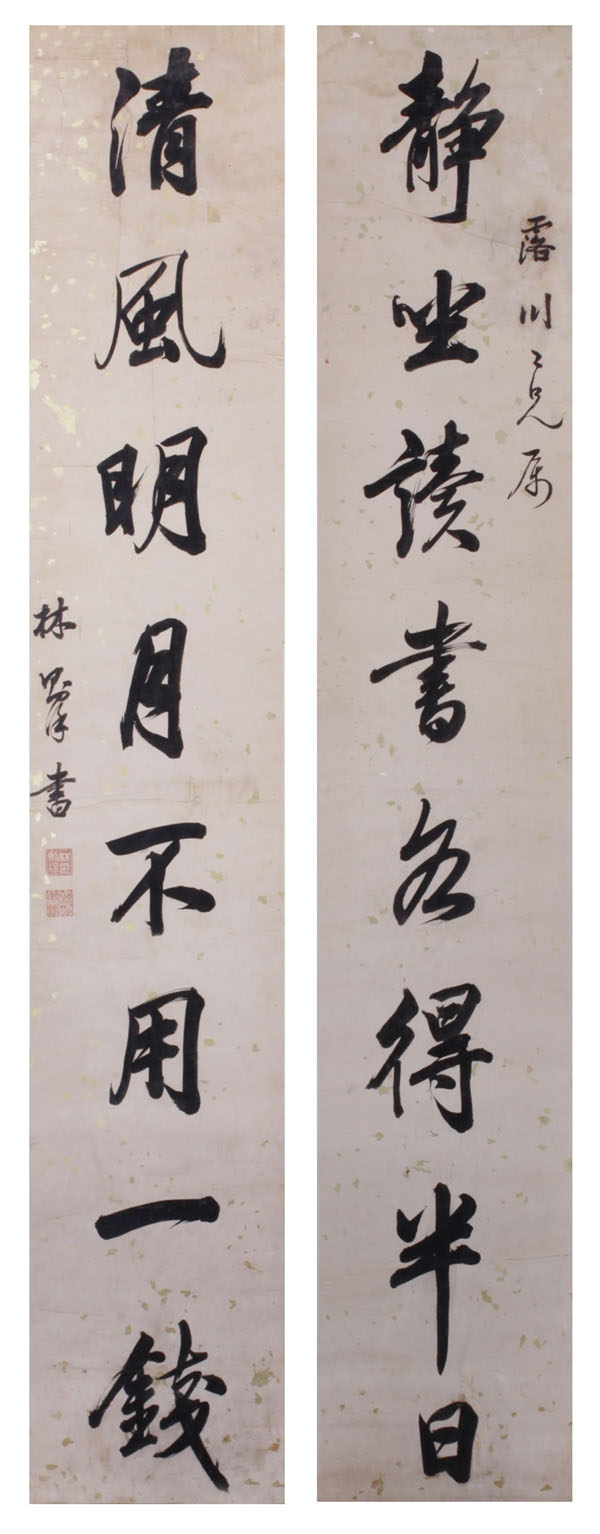 靜坐讀書各得半日
露川二兄属
清風明月不用一錢
林則徐書